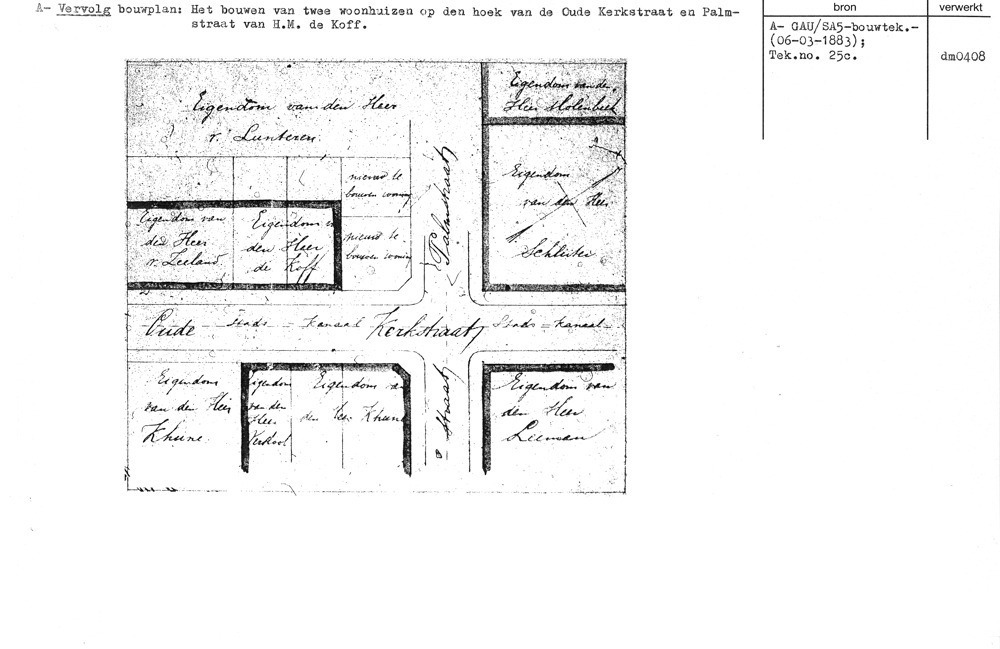 A- Vervolg bouwplan: Het bouwen van twee woonhuizen op den hoek van de Oude Kerkstraat en Palm-
straat van H.M. de Koff.
bron
verwerkt
A- GAU/SA5-bouwtek.-
(06-03-1883);
Tek.no. 25c.
dm0408
Eigendom van den Heer
v. Lunteren.
Eigendom van den
Heer Molenbeek
nieuw te
bouwen woning
Eigendom
van den Heer
Schluter
Palmstraat
Eigendom van
den Heer
v. Zeeland.
Eigendom v
den Heer
de Koff
nieuw te
bouwen woning
Oude Stads = Kanaal Kerkstraat Stads = Kanaal
Eigendom
van den Heer
Khune.
Eigendom
van den
Heer
Verkool
Eigendom van
den Heer Khune
Straat
Eigendom van
den Heer
Leeman